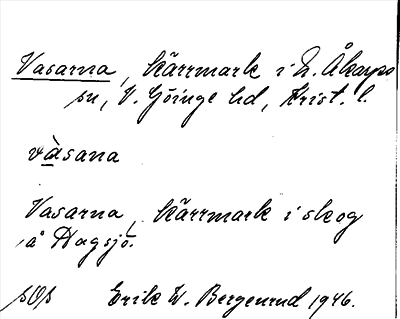 Vasarna, kärrmark i N. Åkarps
sn, V. Göinge hd, Krist. l.
vàsana
Vasarna, kärrmark i skog
å Dagsjö.
sOs Erik W. Bergenrud 1946.